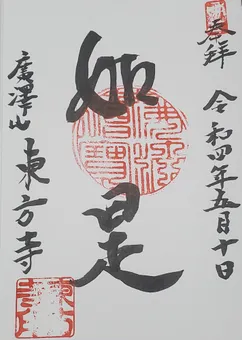 奉拝 令和四年五月十日
如是
廣澤山 東方寺
佛法僧寶